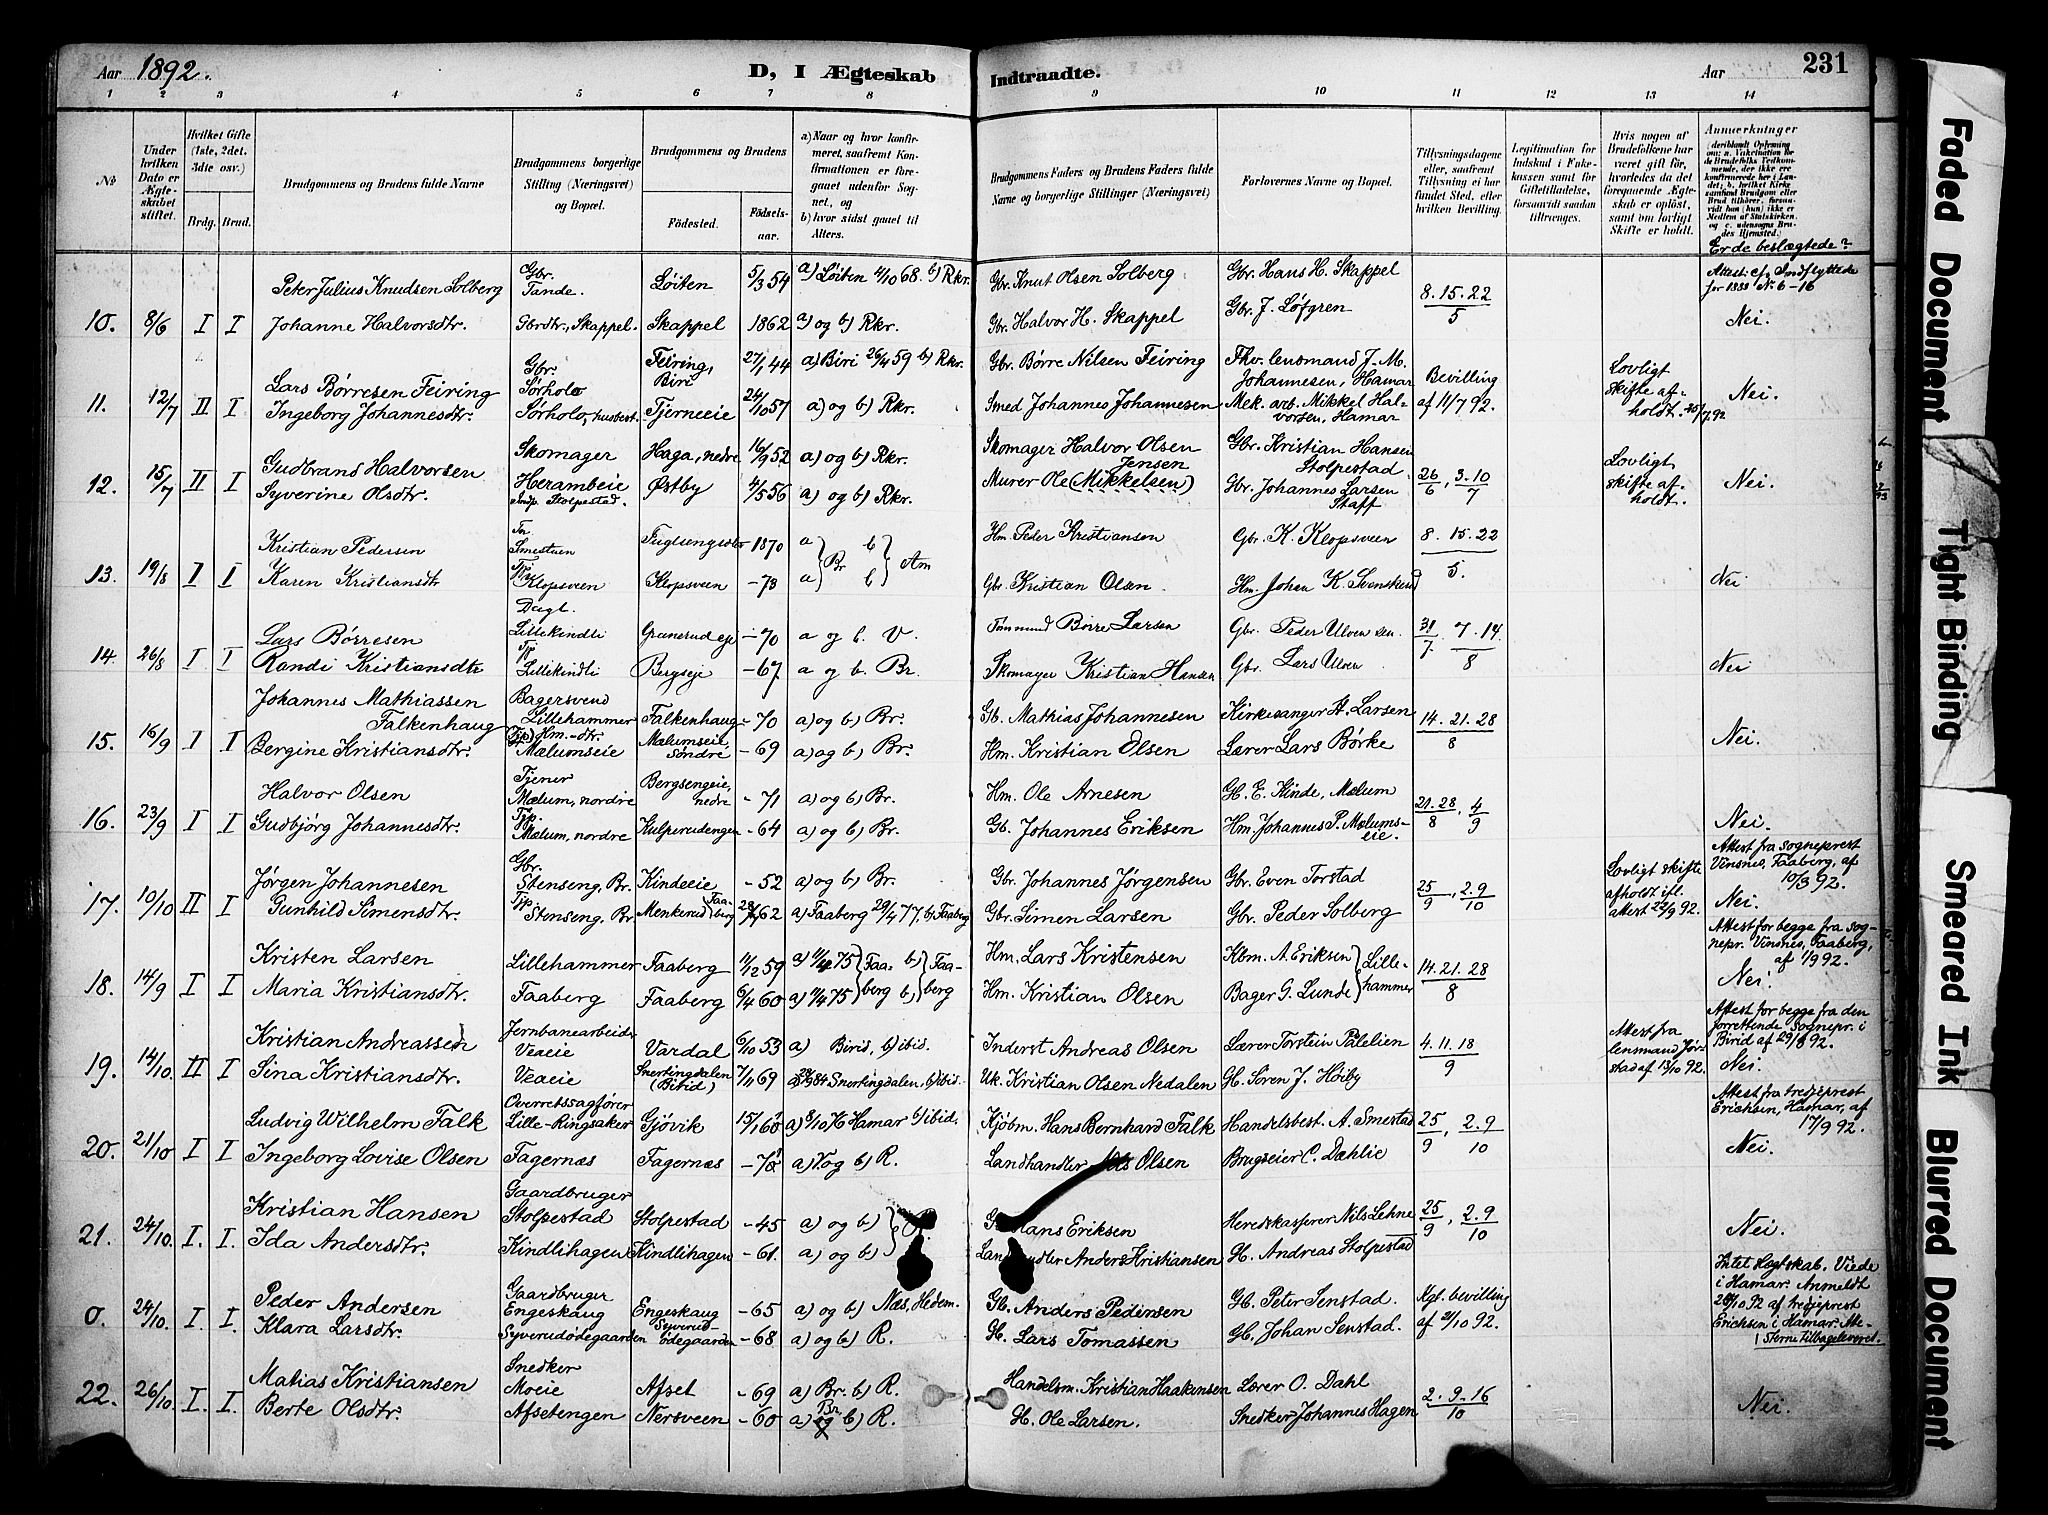 Aar 1892. D, I Ægteskab Indtraadte. Aar 231
1 2 3 4 5 6 7 8 9 10 11 12 13 14
No
Under hvilken Dato er Ægteskabet stiftet.
Hvilket Gifte (1ste, 2det, 3die osv.)
Brdg. Brud.
Brudgommens og Brudens fulde Navne
Brudgommens borgerlige Stilling (Næringsvei) og Bopæl.
Brudgommens og Brudens
Födested. Födselsaar.
a) Naar og hvor konfirmeret, saafremt Konfirmationen er foregaaet udenfor Sognet, og
b) hvor sidst gaaet til Alters.
Brudgommens Faders og Brudens Faders fulde Navne og borgerlige Stillinger (Næringsvei)
Forlovernes Navne og Bopæl.
Tillysningsdagene eller, saafremt Tillysning ei har fundet Sted, efter hvilken Bevilling.
Legitimation for Indskud i Enkekassen samt for Giftetilladelse, forsaavidt saadan tiltrænges.
Hvis nogen af Brudefolkene har været gift før, hvorledes da det foregaaende Ægteskab er oplöst, samt om lovligt Skifte er holdt.
Anmærkninger
Er de beslægtede?
Peter Julius Knudsen Solberg Gbr. Tande. Løiten 5/3 54 a) Løiten 4/10 68. b) Rkr. Gbr. Knut Olsen Solberg Gbr. Hans H. Skappel 8. 15. 22 / 5
10. 8/6 I I Johanne Halvorsdtr. Gbrdtr., Skappel. Skappel 1862 a) og b) Rkr. Gbr. Halvor H. Skappel Gbr. J. Løfgren Nei.
11. 12/7 II I Lars Børresen Feiring Gbr. Sørholo Feiring, Biri 27/1 44 a) Biri 26/4 59 b) Rkr. Gbr. Børre Nilsen Feiring Fhv. lensmand J. M. Johannesen, Hamar Bevilling af 11/7 92. Lovligt skifte afholdt. Nei.
Ingeborg Johannesdtr. Sørholo, husbest. Tjerneeie 24/10 57 a) og b) Rkr. Smed Johannes Johannesen Mek. arb. Mikkel Halvorsen, Hamar
12. 15/7 II I Gudbrand Halvorsen Skomager Herambeie Haga, nedre 16/9 52 a) og b) Rkr. Skomager Halvor Olsen Gbr. Kristian Hansen Stolpestad 26/6, 3. 10/7 Lovligt skifte afholdt. Nei.
Syverine Olsdtr. Stolpestad. Østby 4/5 56 a) og b) Rkr. Murer Ole (Mikkelsen) Jensen Gbr. Johannes Larsen Staff
13. 19/8 I I Kristian Pedersen Smestuen 1870 a b Br Am Hm. Peder Kristiansen Gbr. K. Klopsveen 8. 15. 22 / 5. Nei
Karen Kristiansdtr Klopsveen Klopsveen -73 a b Gbr. Kristian Olsen Hm. Johan K. Svenskerud
14. 26/8 I I Lars Børresen Dagl. Lillekindli Granerudeje -70 a og b. V. Tømmermd Børre Larsen Gbr. Peder Ulven sen. 31/7. 7. 14. / 8 Nei
Randi Kristiansdtr Tp. Lillekindli Bergseje -67 a og b. Br. Skomager Kristian Hansen Gbr. Lars Ulven
15. 16/9 I I Johannes Mathiassen Falkenhaug Bagersvend Lillehammer Falkenhaug -70 a) og b) Br. Gb. Mathias Johannesen Kirkesanger H. Larsen 14. 21. 28 / 8 Nei.
Bergine Kristiansdtr. Hm.-dtr. Mælumseie Mælumseie, søndre -69 a) og b) Br. Hm. Kristian Olsen Lærer Lars Børke
16. 23/9 I I Halvor Olsen Tjener Mælum, nordre Bergsengeie, nedre -71 a) og b) Br. Hm. Ole Arnesen Gb. E. Kinde, Mælum 21. 28/8, 4/9 Nei.
Gudbjørg Johannesdtr. Tp. Mælum, nordre Kulperudengen -64 a) og b) Br. Gb. Johannes Eriksen Hm. Johannes P. Mælumseie.
17. 10/10 II I Jørgen Johannesen Gbr. Stenseng. Br. Kindeeie -52 a) og b) Br. Gbr. Johannes Jørgensen Gbr. Even Torstad 25/9, 2. 9/10 Lovligt skifte afholdt ifl. attest 22/9 92. Attest fra sogneprest Vinsnes, Faaberg, af 10/3 92. Nei.
Gunhild Simensdtr. Tp. Stenseng. Br. Menkerud Faaberg 62 a) Faaberg 29/4 77. b) Faaberg Gbr. Simen Larsen Gbr. Peder Solberg
18. 14/9 I I Kristen Larsen Lillehammer Faaberg 11/12 59 a) 11/4 75 Faaberg b) Faaberg Hm. Lars Kristensen Kbm. A. Eriksen Lillehammer 14. 21. 28 / 8 Attest for begge fra sognepr. Vinsnes, Faaberg, af 1/9 92. Nei.
Maria Kristiansdtr. Faaberg Faaberg 6/4 60 a) 11/4 75 b) Hm. Kristian Olsen Bager G. Lunde
19. 14/10. II I Kristian Andreassen Jernbanearbeider Veaeie Vardal 6/10 53 a) Birid, b) ibid. Inderst Andreas Olsen Lærer Torstein Pålelien 4. 11. 18 / 9 Attest fra lensmand Jørstad af 13/10 92. Attest for begge fra den forrettende sognepr. i Birid af 29/8 92. Nei.
Sina Kristiansdtr. Veaeie Snertingdalen (Birid) 7/4 69 84 Snertingdalen, b) ibid. Uk. Kristian Olsen Nedalen Gb. Søren J. Høiby
20. 21/10 I I Ludvig Wilhelm Falk Overretssagfører Lille-Ringsaker Gjøvik 15/1 60 a) 8/10 Hamar b) ibid. Kjøbm. Hans Bernhard Falk Handelsbest. A. Smestad 25/9, 2. 9/10 Attest fra tredjeprest Erichsen, Hamar, af 17/9 92. Nei.
Ingeborg Lovise Olsen Fagernæs Fagernæs a) og b) R. Landhandler Olsen Brugseier C. Dæhlie
21. 24/10. I. I. Kristian Hansen Gaardbruger Stolpestad Stolpestad -45 a) og b) Hans Eriksen Heredskasserer Nils Lehne 25/9, 2. 9/10 Nei.
Ida Andersdtr. Kindlihagen Kindlihagen -61. a) og b) Landhandler Anders Kristiansen Gb. Andreas Stolpestad
0. 24/10. I. I. Peder Andersen Gaardbruger Engeskaug Engeskaug -65 a) og b) Næs, Hedem. Gb. Anders Pedersen Gb. Peter Senstad. Kgl. bevilling af 21/10 92. Intet slegtskab. Viede i Hamar. Anmeldt 28/10 92 af tredjeprest Erichsen i Hamar. Attesterne tilbageleveret.
Klara Larsdtr. Syverudødegaarden Syverudødegaarden -68 a) og b) R. Gb. Lars Tomassen Gb. Johan Senstad.
22. 26/10. I. I. Matias Kristiansen Snedker Moeie Afset -69 a) Br. b) R. Handelsm. Kristian Haakensen Lærer O. Dahl 2. 9. 16 / 10 Nei.
Berte Olsdtr. Afsetengen Nersveen -60 a) Br b) R. Gb. Ole Larsen. Snedker Johannes Hagen
Faded Document
Tight Binding
Smeared Ink
Blurred Document